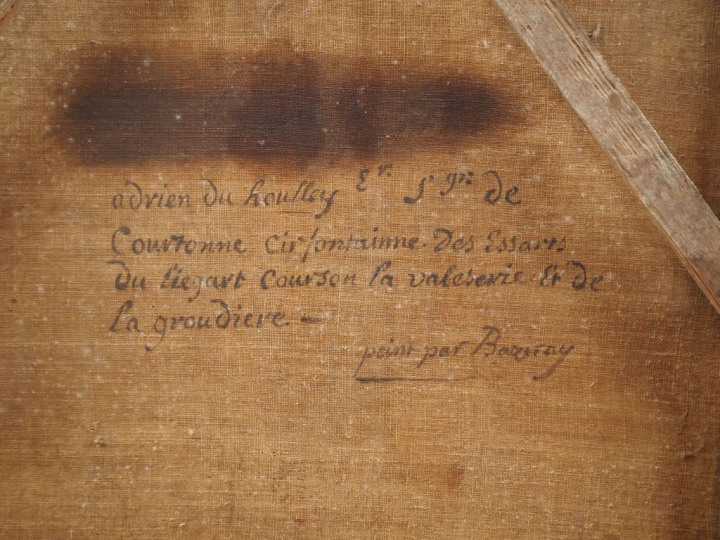 adrien du houlley Er Sgr de
Courtonne Cirfontainne Des Essarts
Du liegart Courson la valeserie Et de
la groudiere
peint par